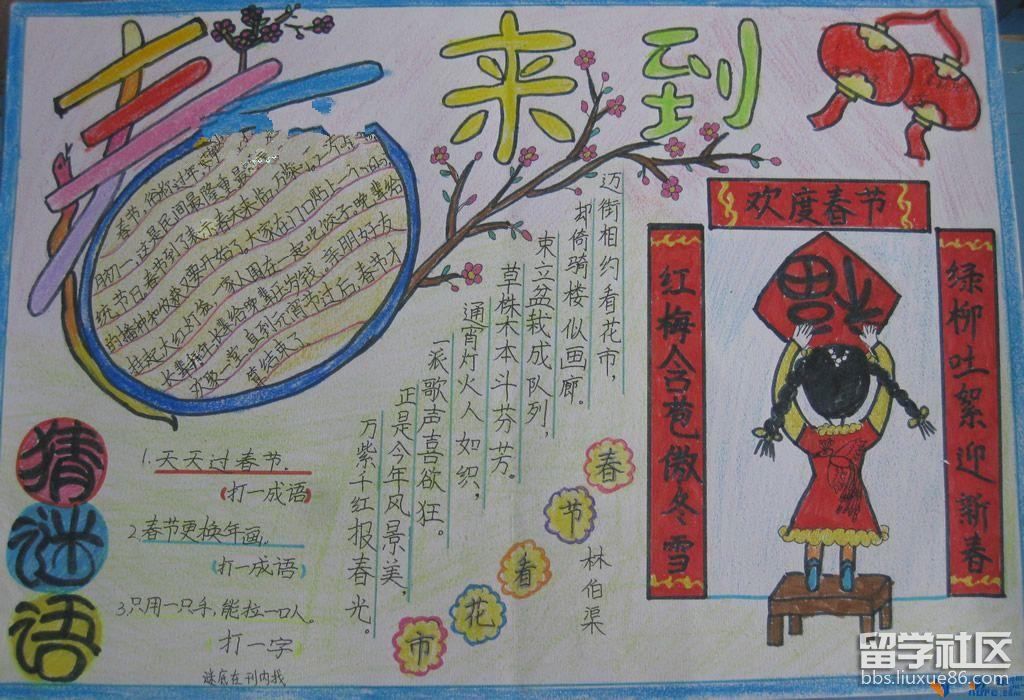 春来到
春节,俗称过年,
初一,这是民间最隆重最
统节日。春节到了表示春天来临,万象
的播种和收获又要开始了。大家在门口贴上一个
挂起大红灯笼,一家人围在一起吃饺子。晚辈给
长辈拜年,长辈给晚辈压岁钱。亲朋好友
欢聚一堂,直到元宵节过后,春节才
算结束了
猜谜语
1.天天过春节。
(打一成语)
2.春节更换年画。
(打一成语)
3.只用一只手,能拉一口人。
打一字
谜底在刊内找
春节看花市
林伯渠
迈街相约看花市,
却倚骑楼似画廊。
束立盆栽成队列,
草株木本斗芬芳。
通宵灯火人如织,
一派歌声喜欲狂。
正是今年风景美,
万紫千红报春光。
欢度春节
红梅含苞傲冬雪
福
绿柳吐絮迎新春
留学社区
bbs.liuxue86.com